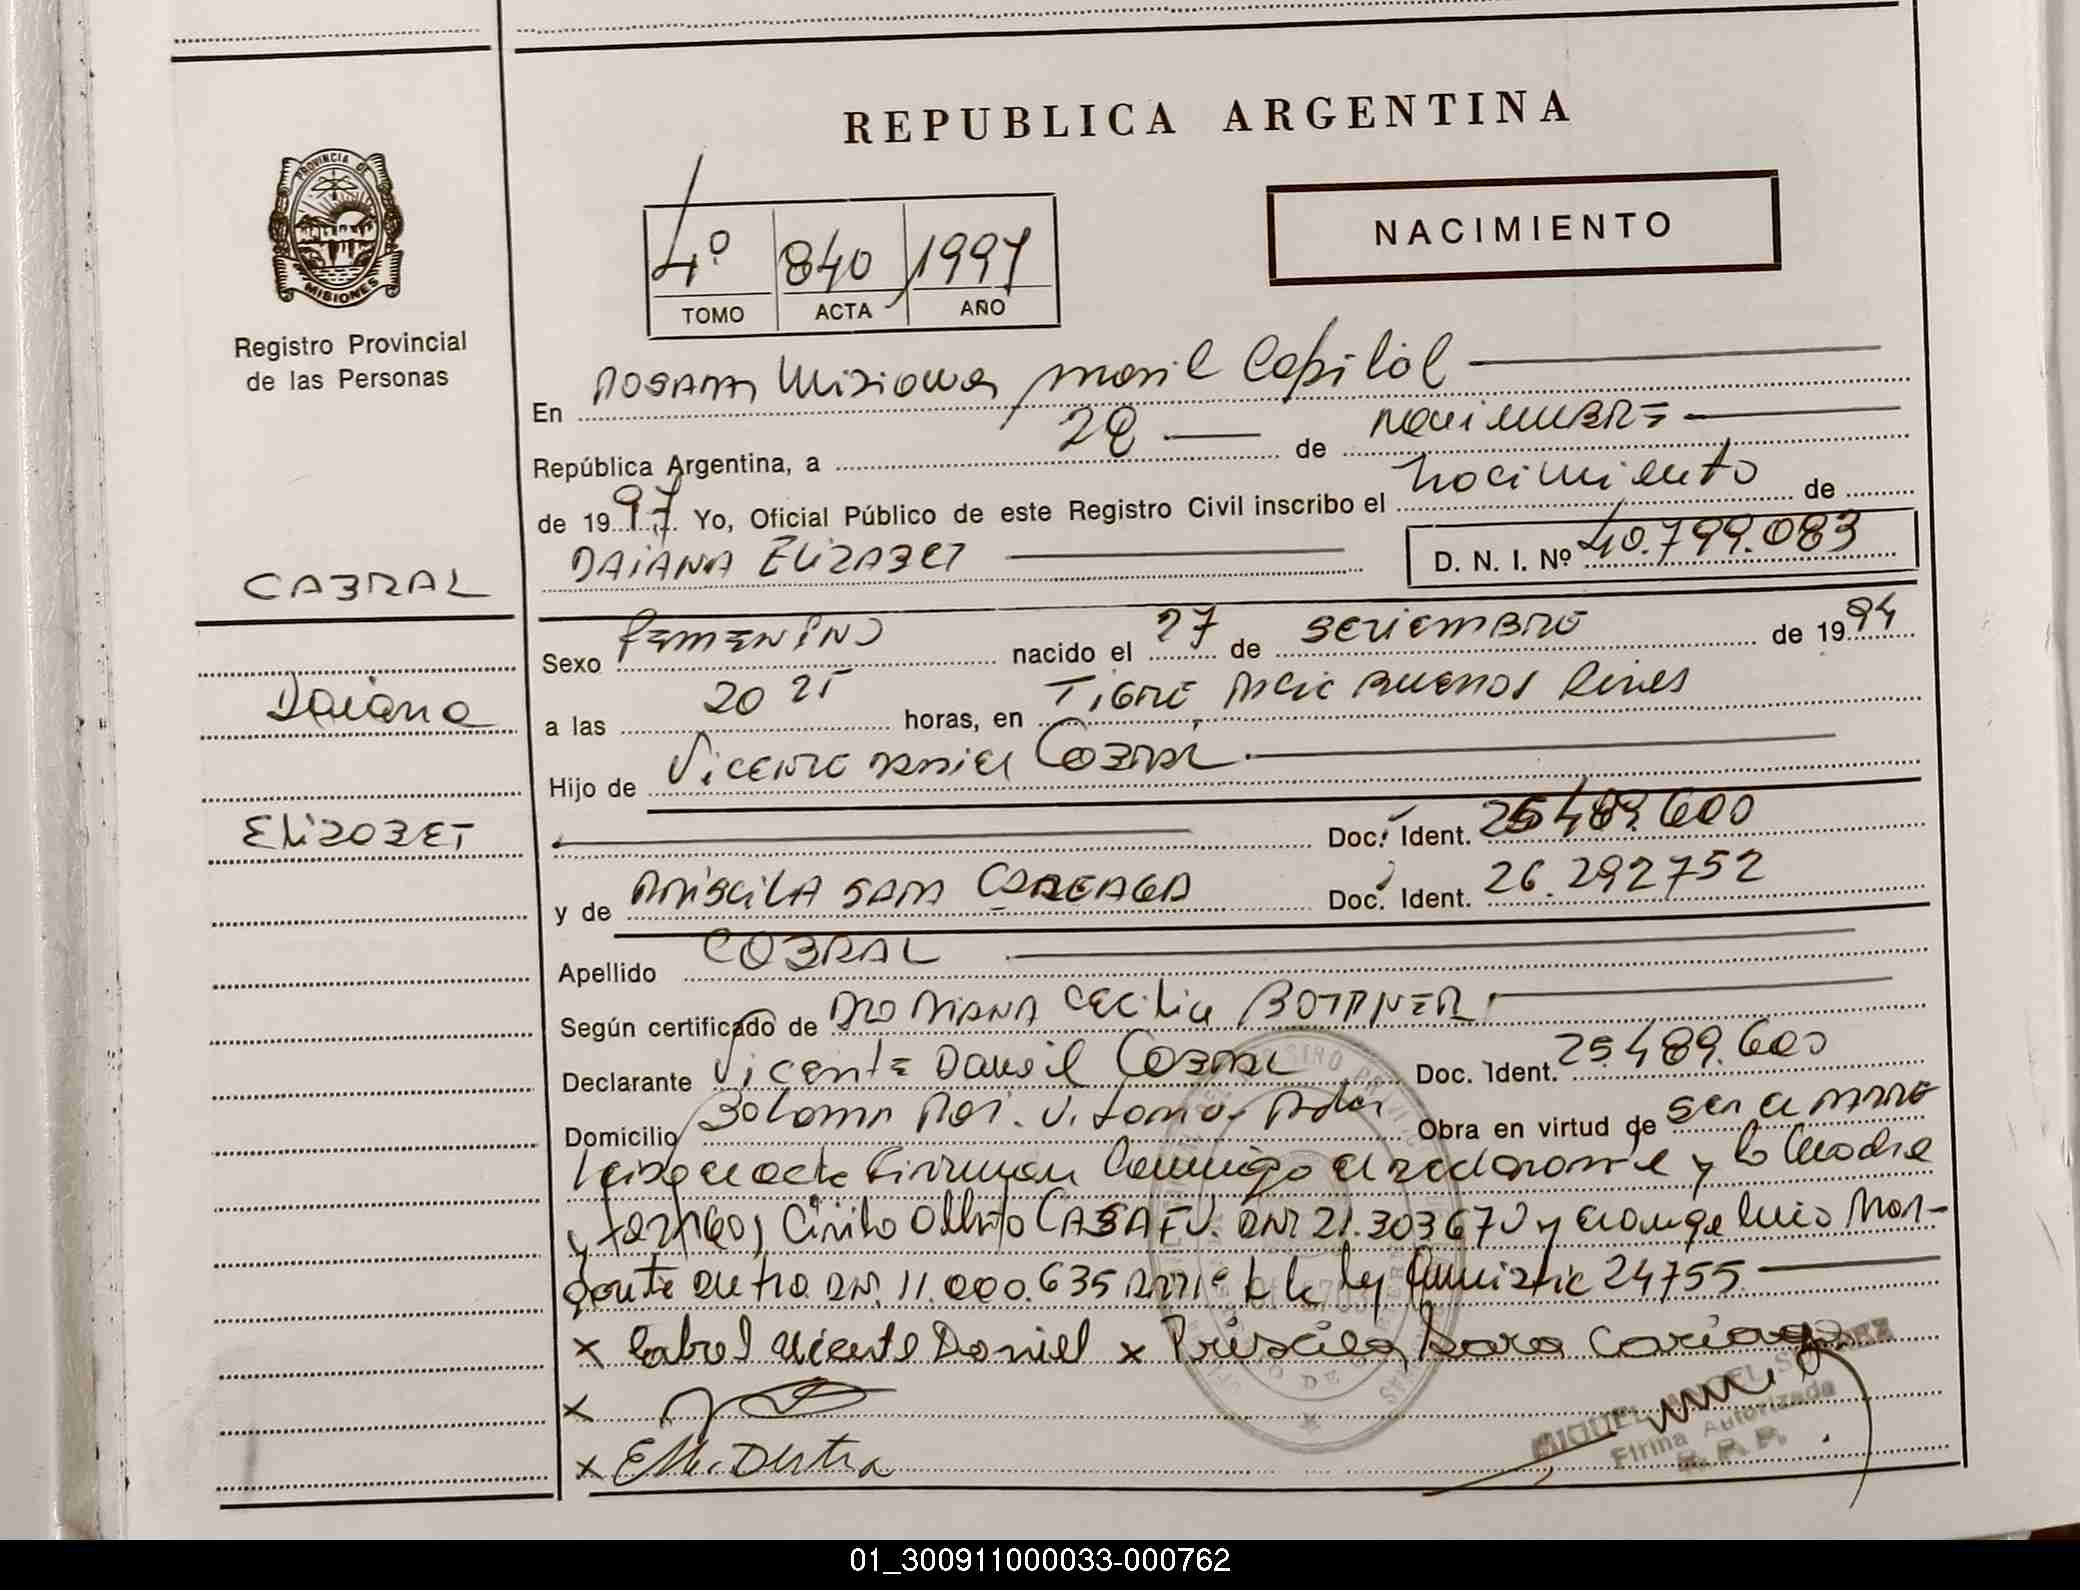 REPUBLICA ARGENTINA
PROVINCIA DE
MISIONES
Registro Provincial
de las Personas
4º 840 1997
TOMO ACTA AÑO
NACIMIENTO
En Posadas Misiones movil Capital
República Argentina, a 28 de noviembre
de 1997. Yo, Oficial Público de este Registro Civil inscribo el nacimiento de
CABRAL
DAIANA ELIZABET D. N. I. Nº 40.799.083
Sexo FEMENINO nacido el 27 de setiembre de 1994
Daiana
a las 20 25 horas, en Tigre Pcic Buenos Aires
Hijo de Vicente Daniel Cabral
ELIZABET
Doc. Ident. 25.489.600
y de Priscila Sara CAREAGA Doc. Ident. 26.292752
Apellido CABRAL
Según certificado de Cecilia
Declarante Vicente Daniel Cabral Doc. Ident. 25.489.600
Domicilio Obra en virtud de ser el padre
acta firman conmigo el declarante y la madre
y testigos Cirilo 21.303670 y Luis
11.000.635 ley amnistia 24755
x Cabral Vicente Daniel x Priscila Sara Cariaga
x
x
MIGUEL ANGEL
Firma Autorizada
R. P. P.
01_300911000033-000762